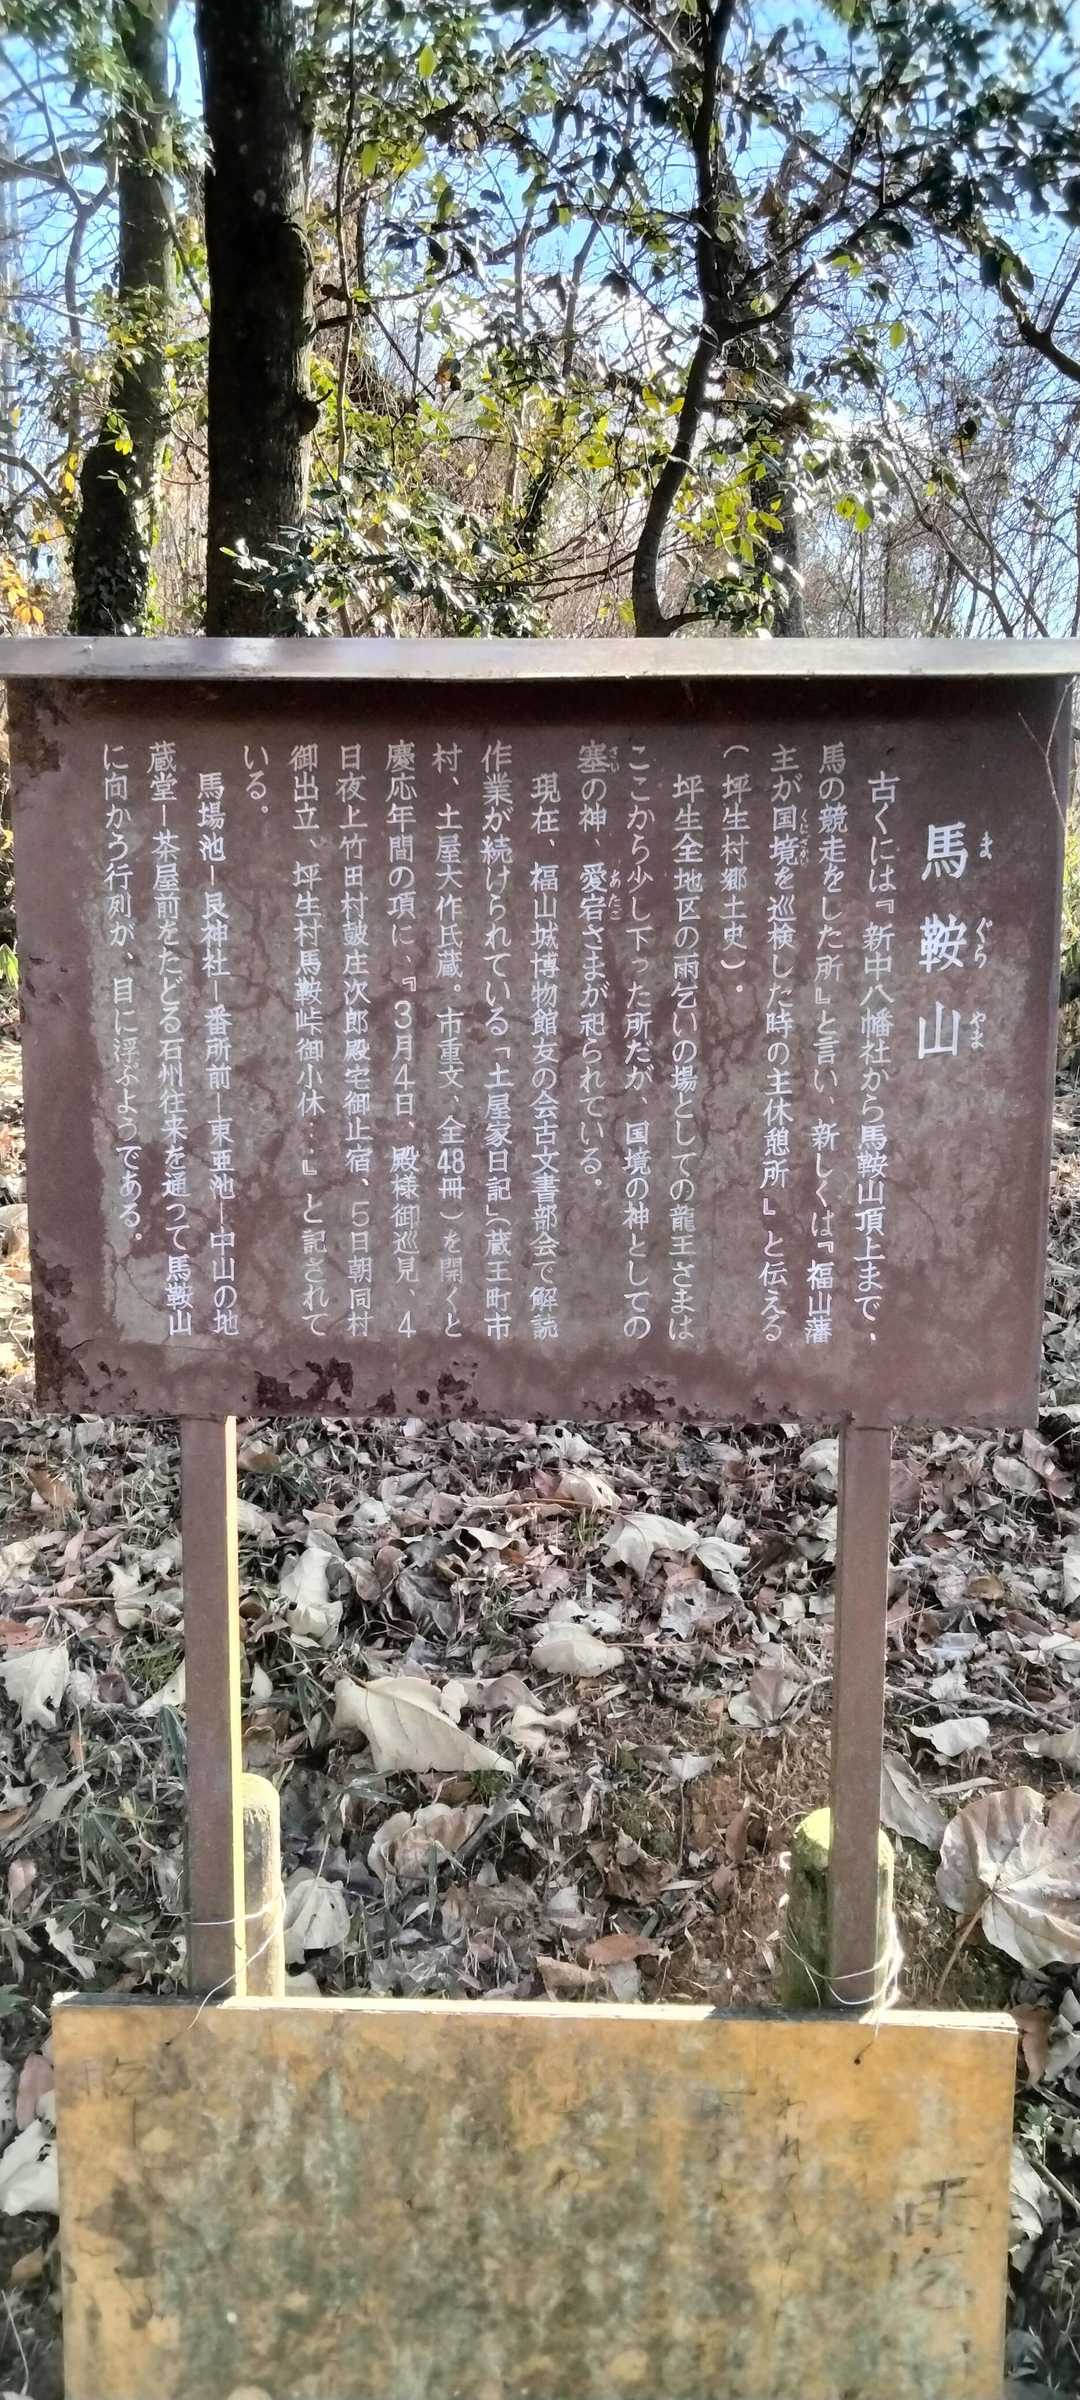 馬鞍山
まぐらやま
古くには『新中八幡社から馬鞍山頂上まで、
馬の競走をした所』と言い、新しくは『福山藩
主が国境を巡検した時の主休憩所』と伝える
くにざかい
(坪生村郷土史)。
坪生全地区の雨乞いの場としての龍王さまは
ここから少し下った所だが、国境の神としての
塞の神、愛宕さまが祀られている。
さい
あたご
現在、福山城博物館友の会古文書部会で解読
作業が続けられている「土屋家日記」(蔵王町市
村、土屋大作氏蔵。市重文、全48冊)を開くと
慶応年間の項に、『3月4日、殿様御巡見、4
日夜上竹田村鼓庄次郎殿宅御止宿、5日朝同村
御出立、坪生村馬鞍峠御小休…』と記されて
いる。
馬場池ー艮神社ー番所前ー東亜池ー中山の地
蔵堂ー茶屋前をたどる石州往来を通って馬鞍山
に向かう行列が、目に浮ぶようである。